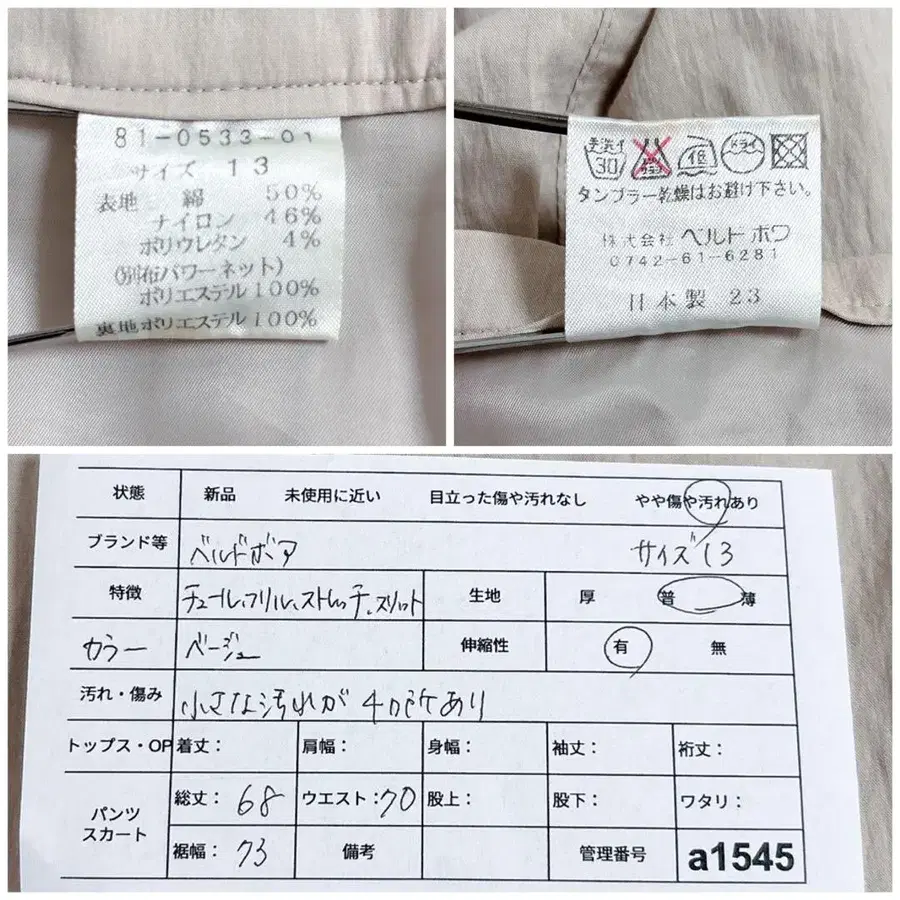 81-0533-01
サイズ 13
表地 綿 50%
ナイロン 46%
ポリウレタン 4%
(別布パワーネット)
ポリエステル100%
裏地ポリエステル100%
手洗イ 30 低 ドライ
タンブラー乾燥はお避け下さい。
株式会社 ベルド ボワ
0742-61-6281
日本製 23
状態 新品 未使用に近い 目立った傷や汚れなし やや傷や汚れあり
ブランド等 ベルドボア サイズ13
特徴 チュール、フリル、ストレッチ、スリット 生地 厚 普 薄
カラー ベージュ 伸縮性 有 無
汚れ・傷み 小さな汚れが4ヶ所あり
トップス・OP 着丈: 肩幅: 身幅: 袖丈: 裄丈:
パンツ スカート 総丈: 68 ウエスト: 70 股上: 股下: ワタリ:
裾幅: 73 備考 管理番号 a1545